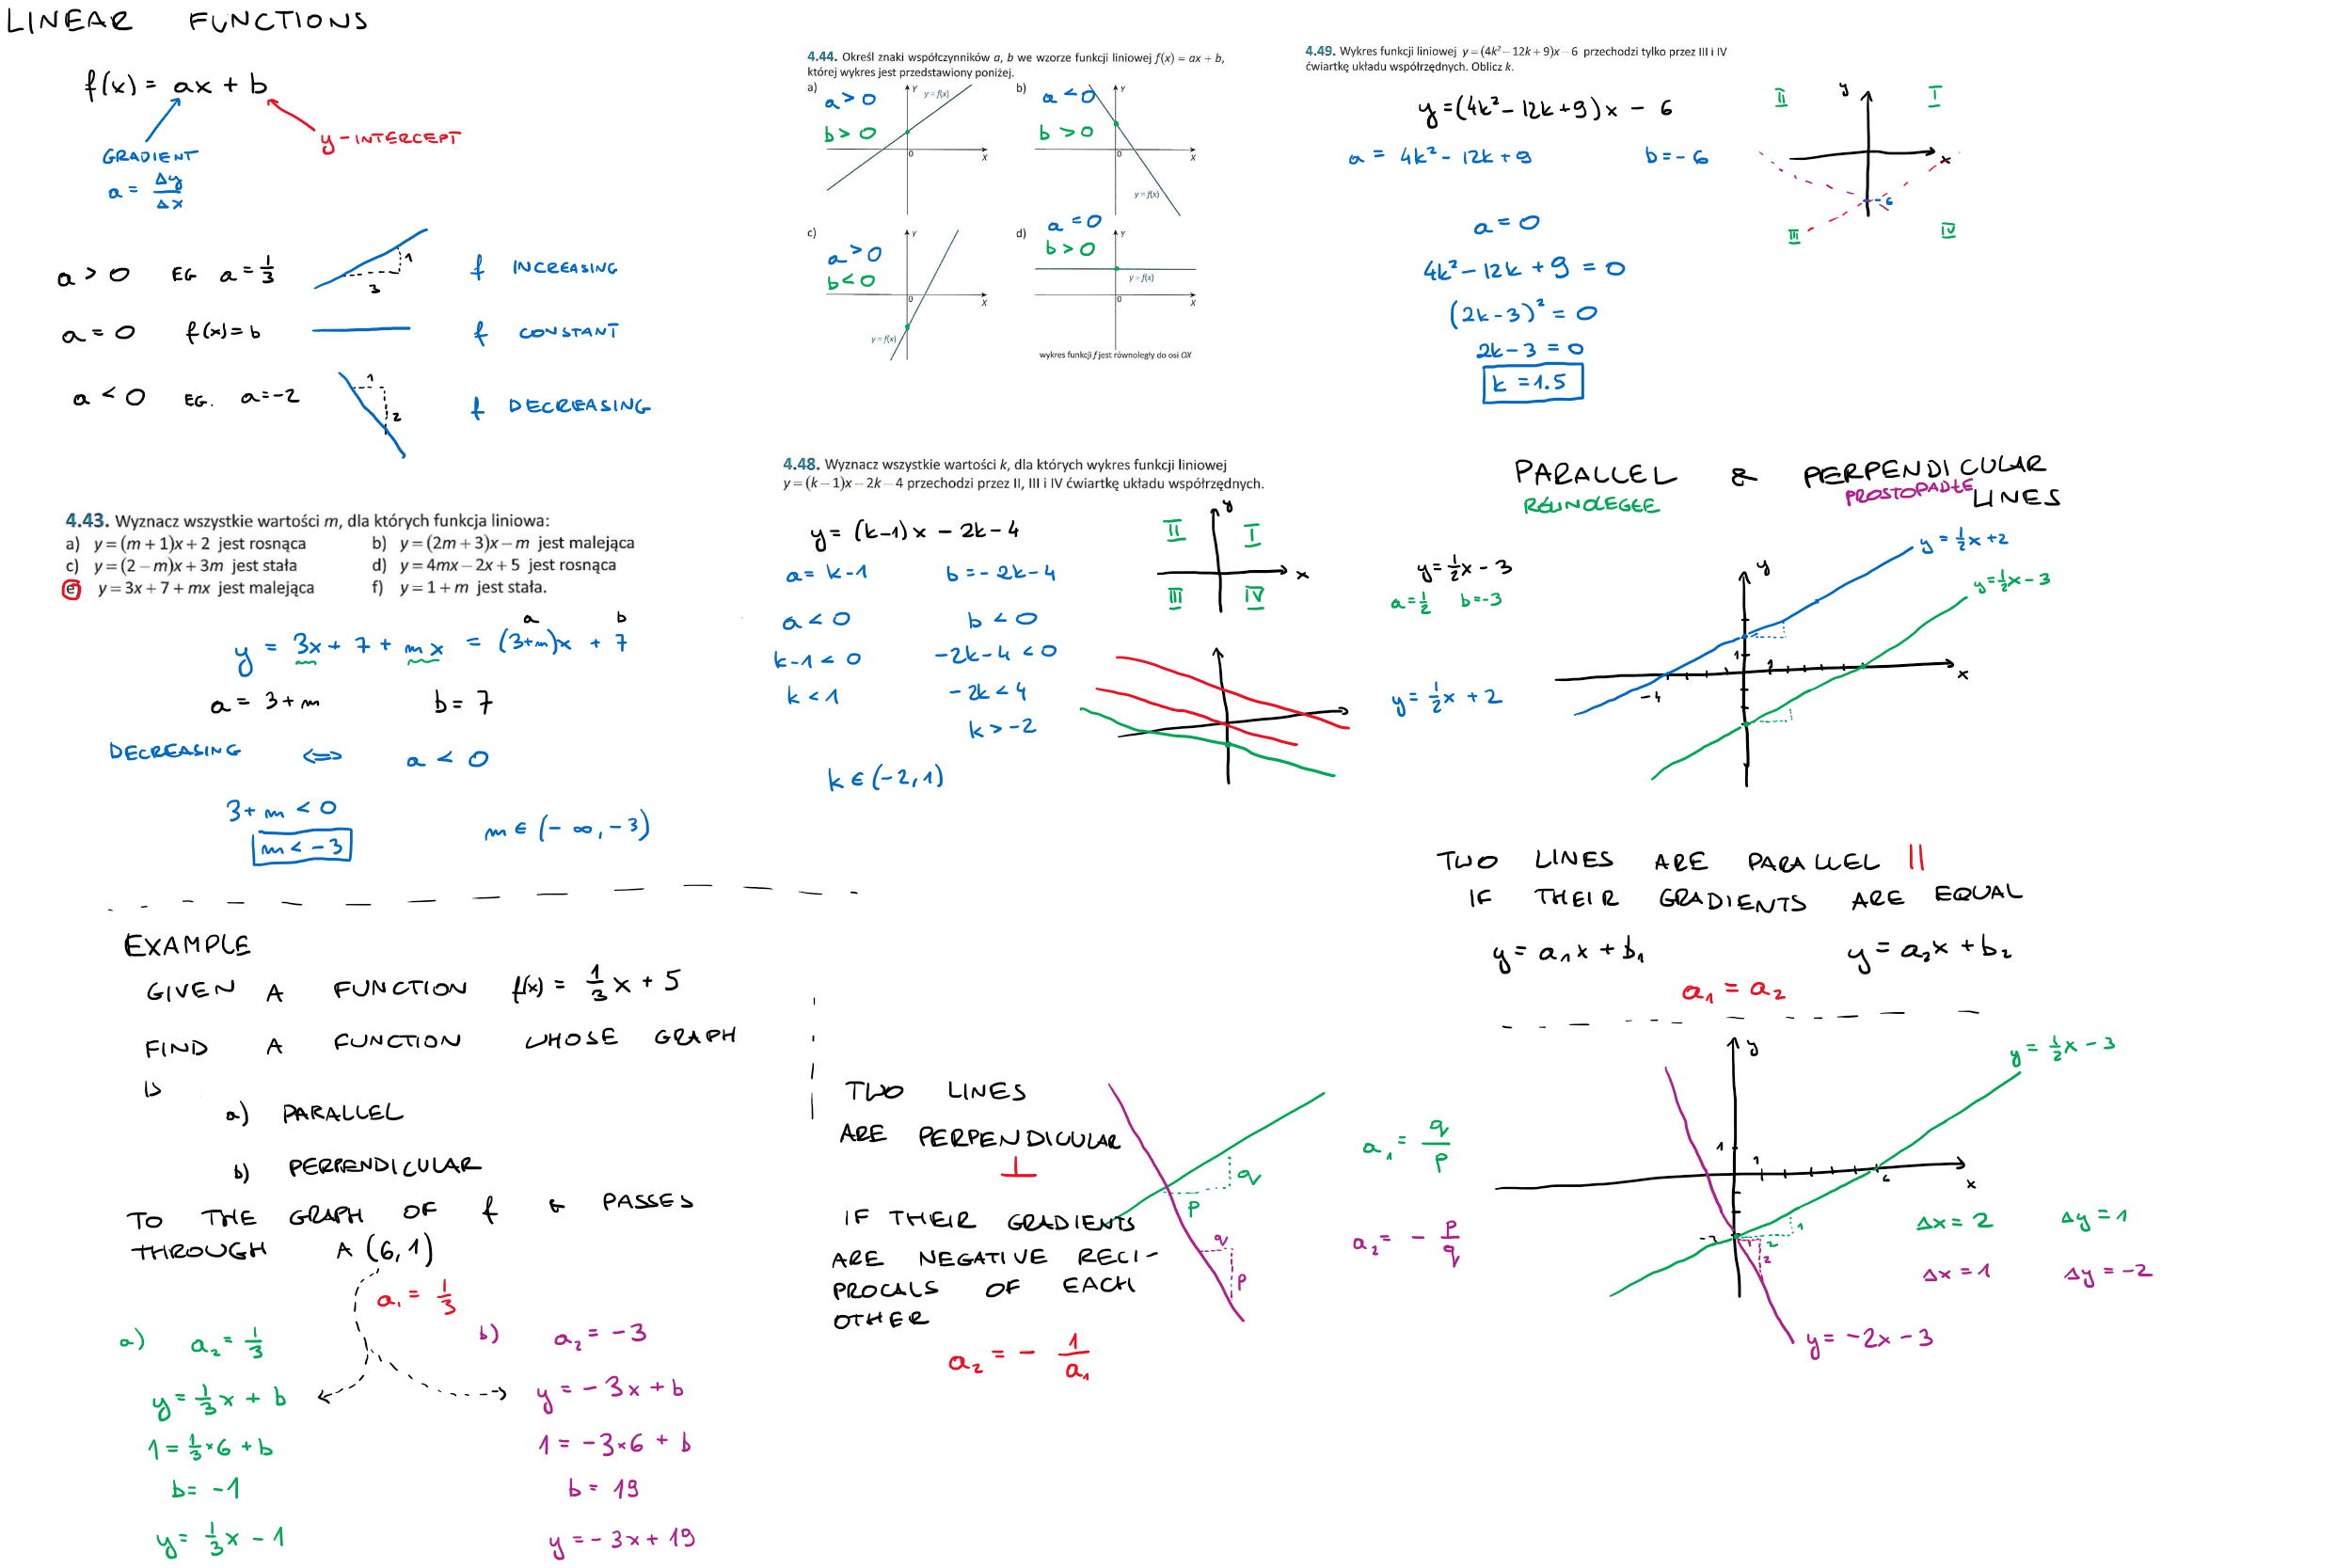 LINEAR FUNCTIONS
f(x) = ax + b
GRADIENT
a = Δy/Δx
y-INTERCEPT
a > 0 EG a = 1/3 1 3 f INCREASING
a = 0 f(x) = b f CONSTANT
a < 0 EG. a = -2 1 2 f DECREASING
4.43. Wyznacz wszystkie wartości m, dla których funkcja liniowa:
a) y = (m + 1)x + 2 jest rosnąca b) y = (2m + 3)x – m jest malejąca
c) y = (2 – m)x + 3m jest stała d) y = 4mx – 2x + 5 jest rosnąca
e) y = 3x + 7 + mx jest malejąca f) y = 1 + m jest stała.
a b
y = 3x + 7 + mx = (3+m)x + 7
a = 3 + m b = 7
DECREASING <=> a < 0
3 + m < 0
m < -3 m ∈ (-∞, -3)
EXAMPLE
GIVEN A FUNCTION f(x) = 1/3 x + 5
FIND A FUNCTION WHOSE GRAPH
IS
a) PARALLEL
b) PERPENDICULAR
TO THE GRAPH OF f & PASSES
THROUGH A (6,1)
a₁ = 1/3
a) a₂ = 1/3
y = 1/3 x + b
1 = 1/3 × 6 + b
b = -1
y = 1/3 x - 1
b) a₂ = -3
y = -3x + b
1 = -3×6 + b
b = 19
y = -3x + 19
4.44. Określ znaki współczynników a, b we wzorze funkcji liniowej f(x) = ax + b,
której wykres jest przedstawiony poniżej.
a) a > 0 b > 0 Y y = f(x) 0 X
b) a < 0 b > 0 Y 0 X y = f(x)
c) a > 0 b < 0 Y 0 X y = f(x)
d) a = 0 b > 0 Y y = f(x) 0 X
wykres funkcji f jest równoległy do osi OX
4.48. Wyznacz wszystkie wartości k, dla których wykres funkcji liniowej
y = (k – 1)x – 2k – 4 przechodzi przez II, III i IV ćwiartkę układu współrzędnych.
y = (k-1)x - 2k - 4
a = k-1 b = -2k-4
a < 0 b < 0
k-1 < 0 -2k-4 < 0
k < 1 -2k < 4
k > -2
k ∈ (-2, 1)
II y I
x
III IV
4.49. Wykres funkcji liniowej y = (4k² – 12k + 9)x – 6 przechodzi tylko przez III i IV
ćwiartkę układu współrzędnych. Oblicz k.
y = (4k² - 12k + 9)x - 6
a = 4k² - 12k + 9 b = -6
a = 0
4k² - 12k + 9 = 0
(2k-3)² = 0
2k - 3 = 0
k = 1.5
II y I
x
-6
III IV
PARALLEL & PERPENDICULAR
RÓWNOLEGŁE PROSTOPADŁE LINES
y = 1/2 x - 3
a = 1/2 b = -3
y = 1/2 x + 2
y = 1/2 x + 2
y = 1/2 x - 3
y
1 1
-4 x
TWO LINES ARE PARALLEL ||
IF THEIR GRADIENTS ARE EQUAL
y = a₁x + b₁ y = a₂x + b₂
a₁ = a₂
TWO LINES
ARE PERPENDICULAR
⊥
IF THEIR GRADIENTS
ARE NEGATIVE RECI-
PROCALS OF EACH
OTHER
a₂ = - 1/a₁
q
p
q
p
a₁ = q/p
a₂ = - p/q
y
y = 1/2 x - 3
1 1
6 x
-3 1 2
1 2
Δx = 2 Δy = 1
Δx = 1 Δy = -2
y = -2x - 3